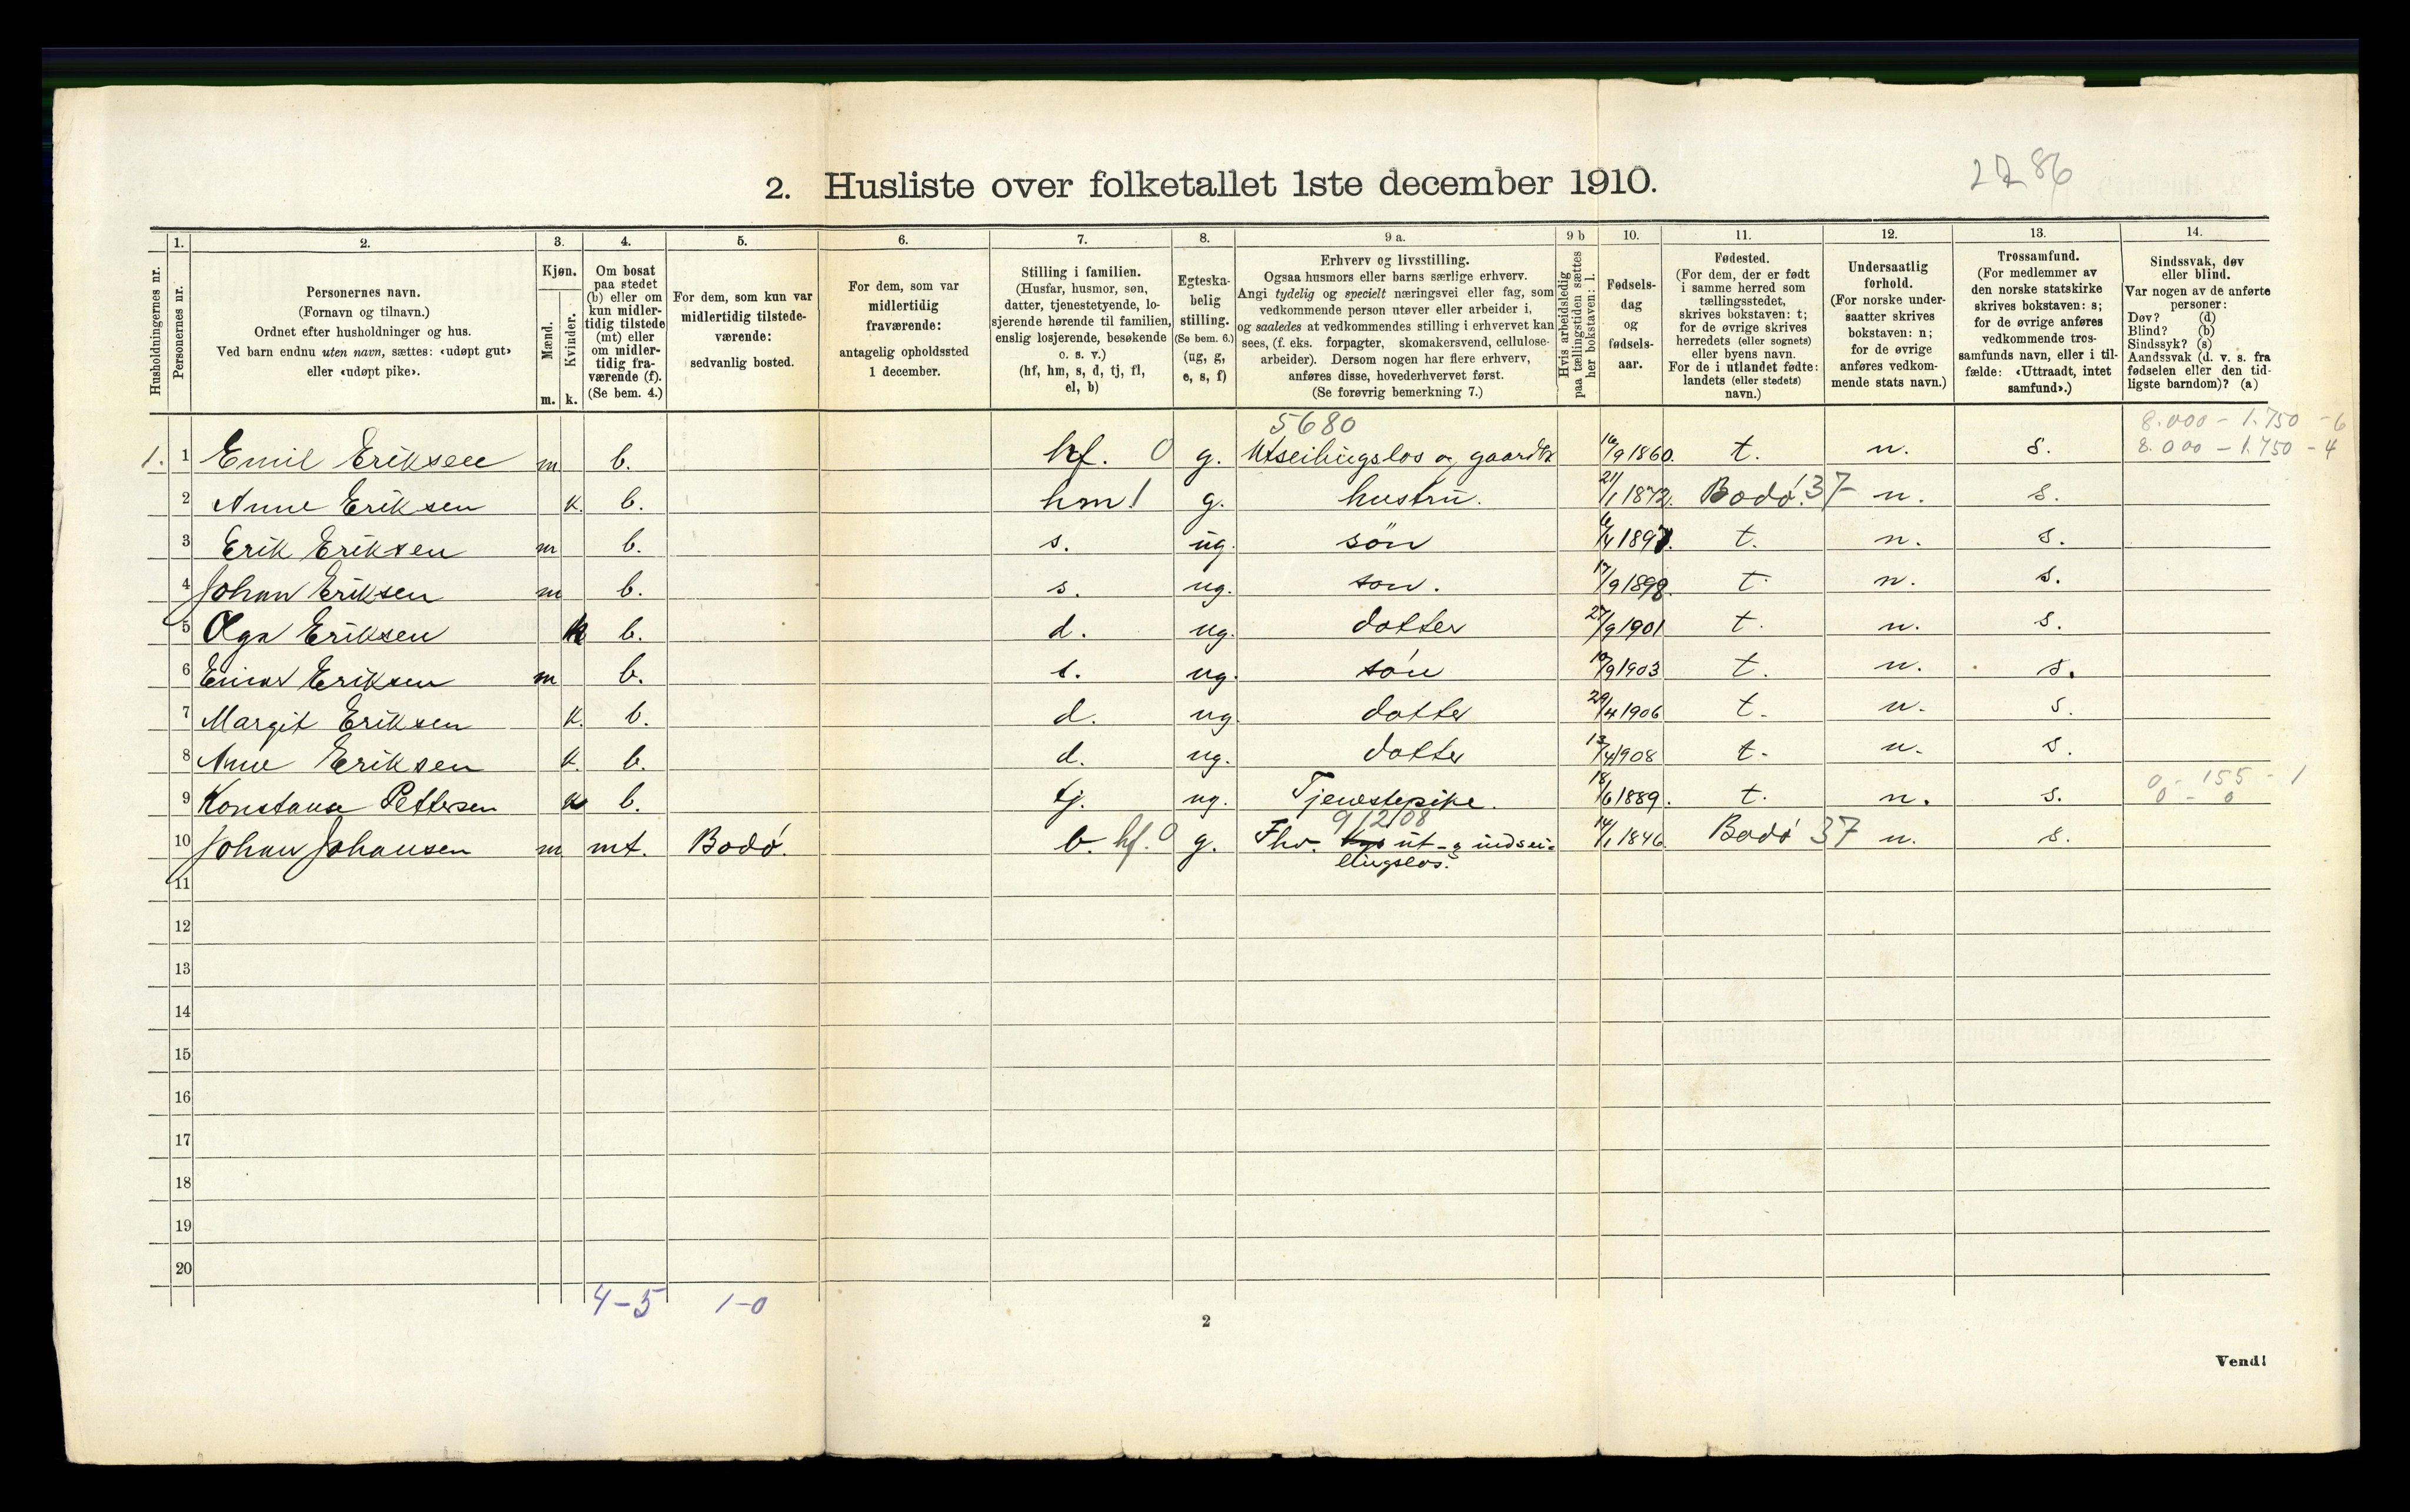 2286
2. Husliste over folketallet 1ste december 1910.
Husholdningernes nr.
1.
Personernes nr.
2.
Personernes navn.
(Fornavn og tilnavn.)
Ordnet efter husholdninger og hus.
Ved barn endnu uten navn, sættes: «udøpt gut»
eller «udøpt pike».
3.
Kjøn.
Mænd.
Kvinder.
m. k.
4.
Om bosat
paa stedet
(b) eller om
kun midler-
tidig tilstede
(mt) eller
om midler-
tidig fra-
værende (f).
(Se bem. 4.)
5.
For dem, som kun var
midlertidig tilstede-
værende:
sedvanlig bosted.
6.
For dem, som var
midlertidig
fraværende:
antagelig opholdssted
1 december.
7.
Stilling i familien.
(Husfar, husmor, søn,
datter, tjenestetyende, lo-
sjerende hørende til familien,
enslig losjerende, besøkende
o. s. v.)
(hf, hm, s, d, tj, fl,
el, b)
8.
Egteska-
belig
stilling.
(Se bem. 6.)
(ug, g,
e, s, f)
9 a.
Erhverv og livsstilling.
Ogsaa husmors eller barns særlige erhverv.
Angi tydelig og specielt næringsvei eller fag, som
vedkommende person utøver eller arbeider i,
og saaledes at vedkommendes stilling i erhvervet kan
sees, (f. eks. forpagter, skomakersvend, cellulose-
arbeider). Dersom nogen har flere erhverv,
anføres disse, hovederhvervet først.
(Se forøvrig bemerkning 7.)
9 b
Hvis arbeidsledig
paa tællingstiden sættes
her bokstaven: l.
10.
Fødsels-
dag
og
fødsels-
aar.
11.
Fødested.
(For dem, der er født
i samme herred som
tællingsstedet,
skrives bokstaven: t;
for de øvrige skrives
herredets (eller sognets)
eller byens navn.
For de i utlandet fødte:
landets (eller stedets)
navn.)
12.
Undersaatlig
forhold.
(For norske under-
saatter skrives
bokstaven: n;
for de øvrige
anføres vedkom-
mende stats navn.)
13.
Trossamfund.
(For medlemmer av
den norske statskirke
skrives bokstaven: s;
for de øvrige anføres
vedkommende tros-
samfunds navn, eller i til-
fælde: «Uttraadt, intet
samfund».)
14.
Sindssvak, døv
eller blind.
Var nogen av de anførte
personer:
Døv? (d)
Blind? (b)
Sindssyk? (s)
Aandssvak (d. v. s. fra
fødselen eller den tid-
ligste barndom)? (a)
5680 8.000 - 1.750 - 6
1. 1 Emil Eriksen m b. hf. 0 g. Utseilingslos og gaardbr 16/9 1860. t. n. s. 8.000 - 1.750 - 4
2 Anne Eriksen k. b. hm 1 g. hustru. 21/1 1872. Bodø. 37 n. s.
3 Erik Eriksen m b. s. ug. søn 6/4 1897. t. n. s.
4 Johan Eriksen m b. s. ug. søn. 17/9 1898. t. n. s.
5 Olga Eriksen k b. d. ug. datter 27/9 1901 t. n. s.
6 Einar Eriksen m b. s. ug. søn 10/9 1903 t. n. s.
7 Margit Eriksen k. b. d. ug. datter 29/4 1906 t. n. s.
8 Anne Eriksen k. b. d. ug. datter 13/4 1908 t. n. s.
9 Konstanse Pettersen k b. tj. ug. Tjenestepike. 18/6 1889. t. n. s. 0 - 155 - 1
0 - 0
9/12/08
10 Johan Johansen m mt. Bodø. b. hf. 0 g. Fhv. ut- og indsei- 14/1 1846. Bodø 37 n. s.
lingslos.
11
12
13
14
15
16
17
18
19
20
4-5 1-0
2
Vend!